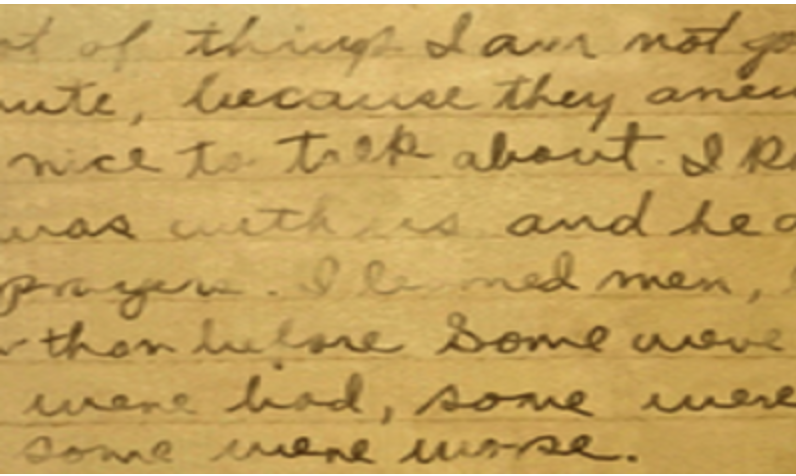 ot of things I am not go
nute, because they aren
nice to talk about. I kn
was with us and he a
prayers. I learned men,
r than before Some were
were bad, some were
some were worse.